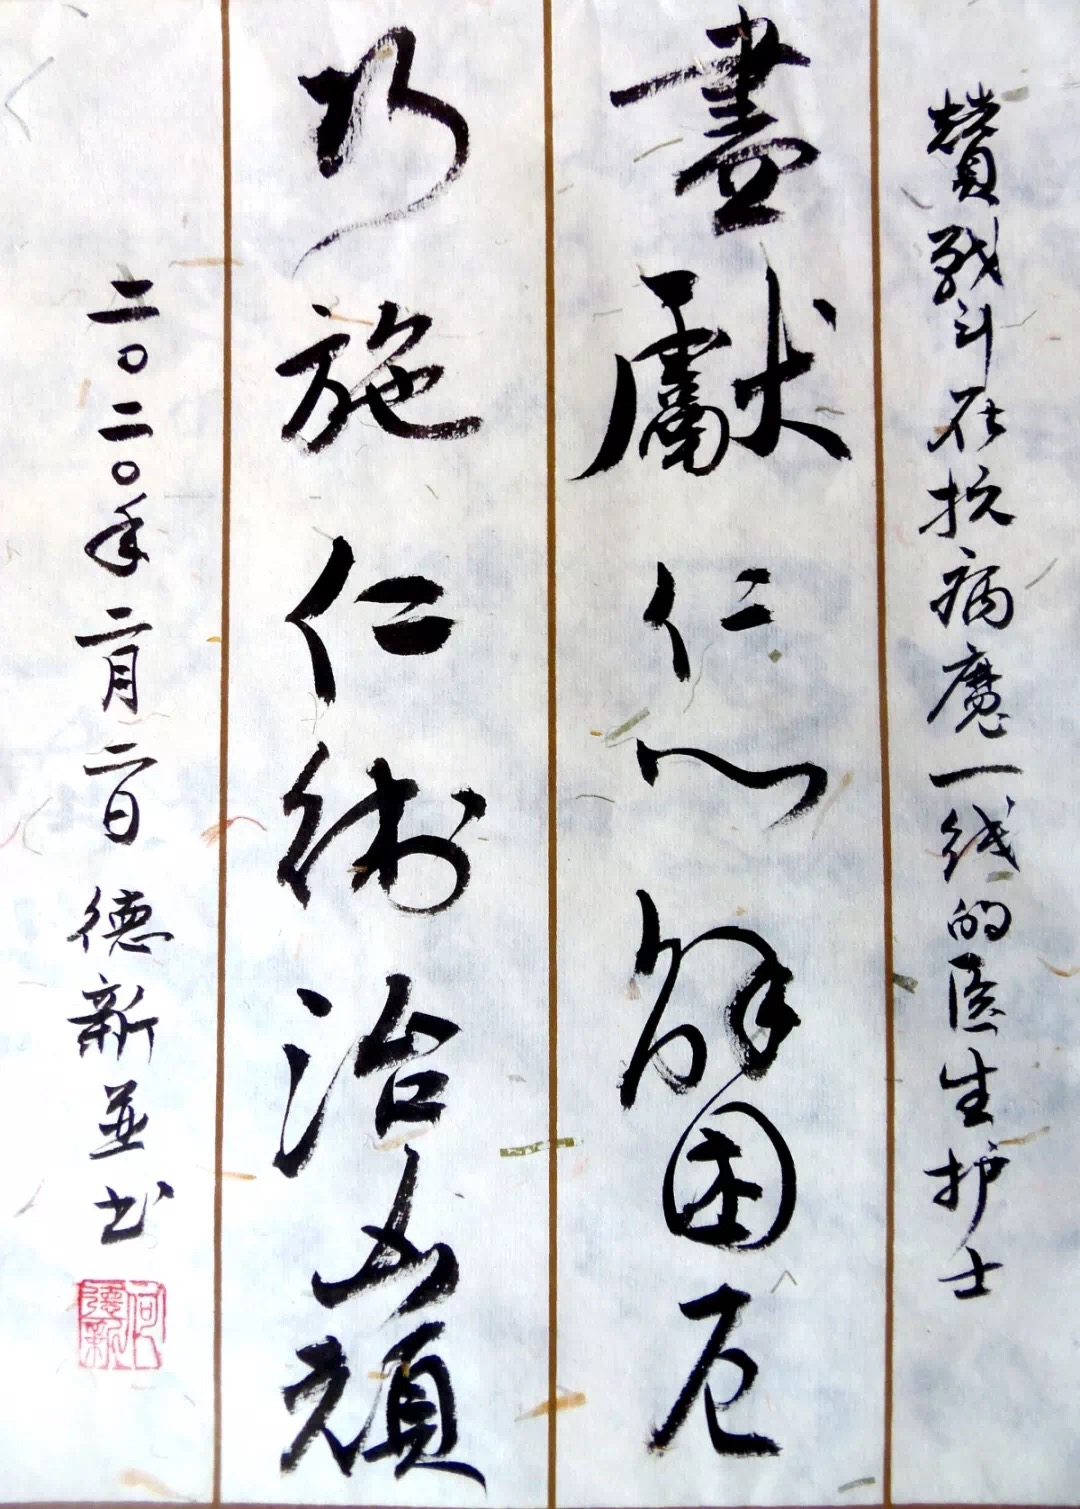 贊战斗在抗病魔一线的医生护士
盡獻仁心解困厄
巧施仁術治凶頑
二〇二〇年二月二日 德新並书
何德新